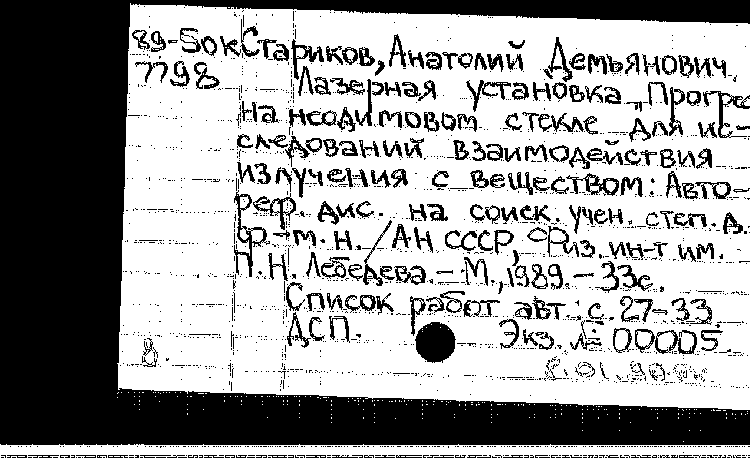 89-5ок Стариков, Анатолий Демьянович.
7798 Лазерная установка „Прогрес
на неодимовом стекле для ис-
следований взаимодействия
излучения с веществом: Авто-
реф. дис. на соиск. учен. степ. д.
ф.-м. н. / АН СССР, Физ. ин-т им.
П. Н. Лебедева. – М., 1989. – 33с.
Список работ авт.: с. 27-33.
ДСП. Экз. № 00005.
8.